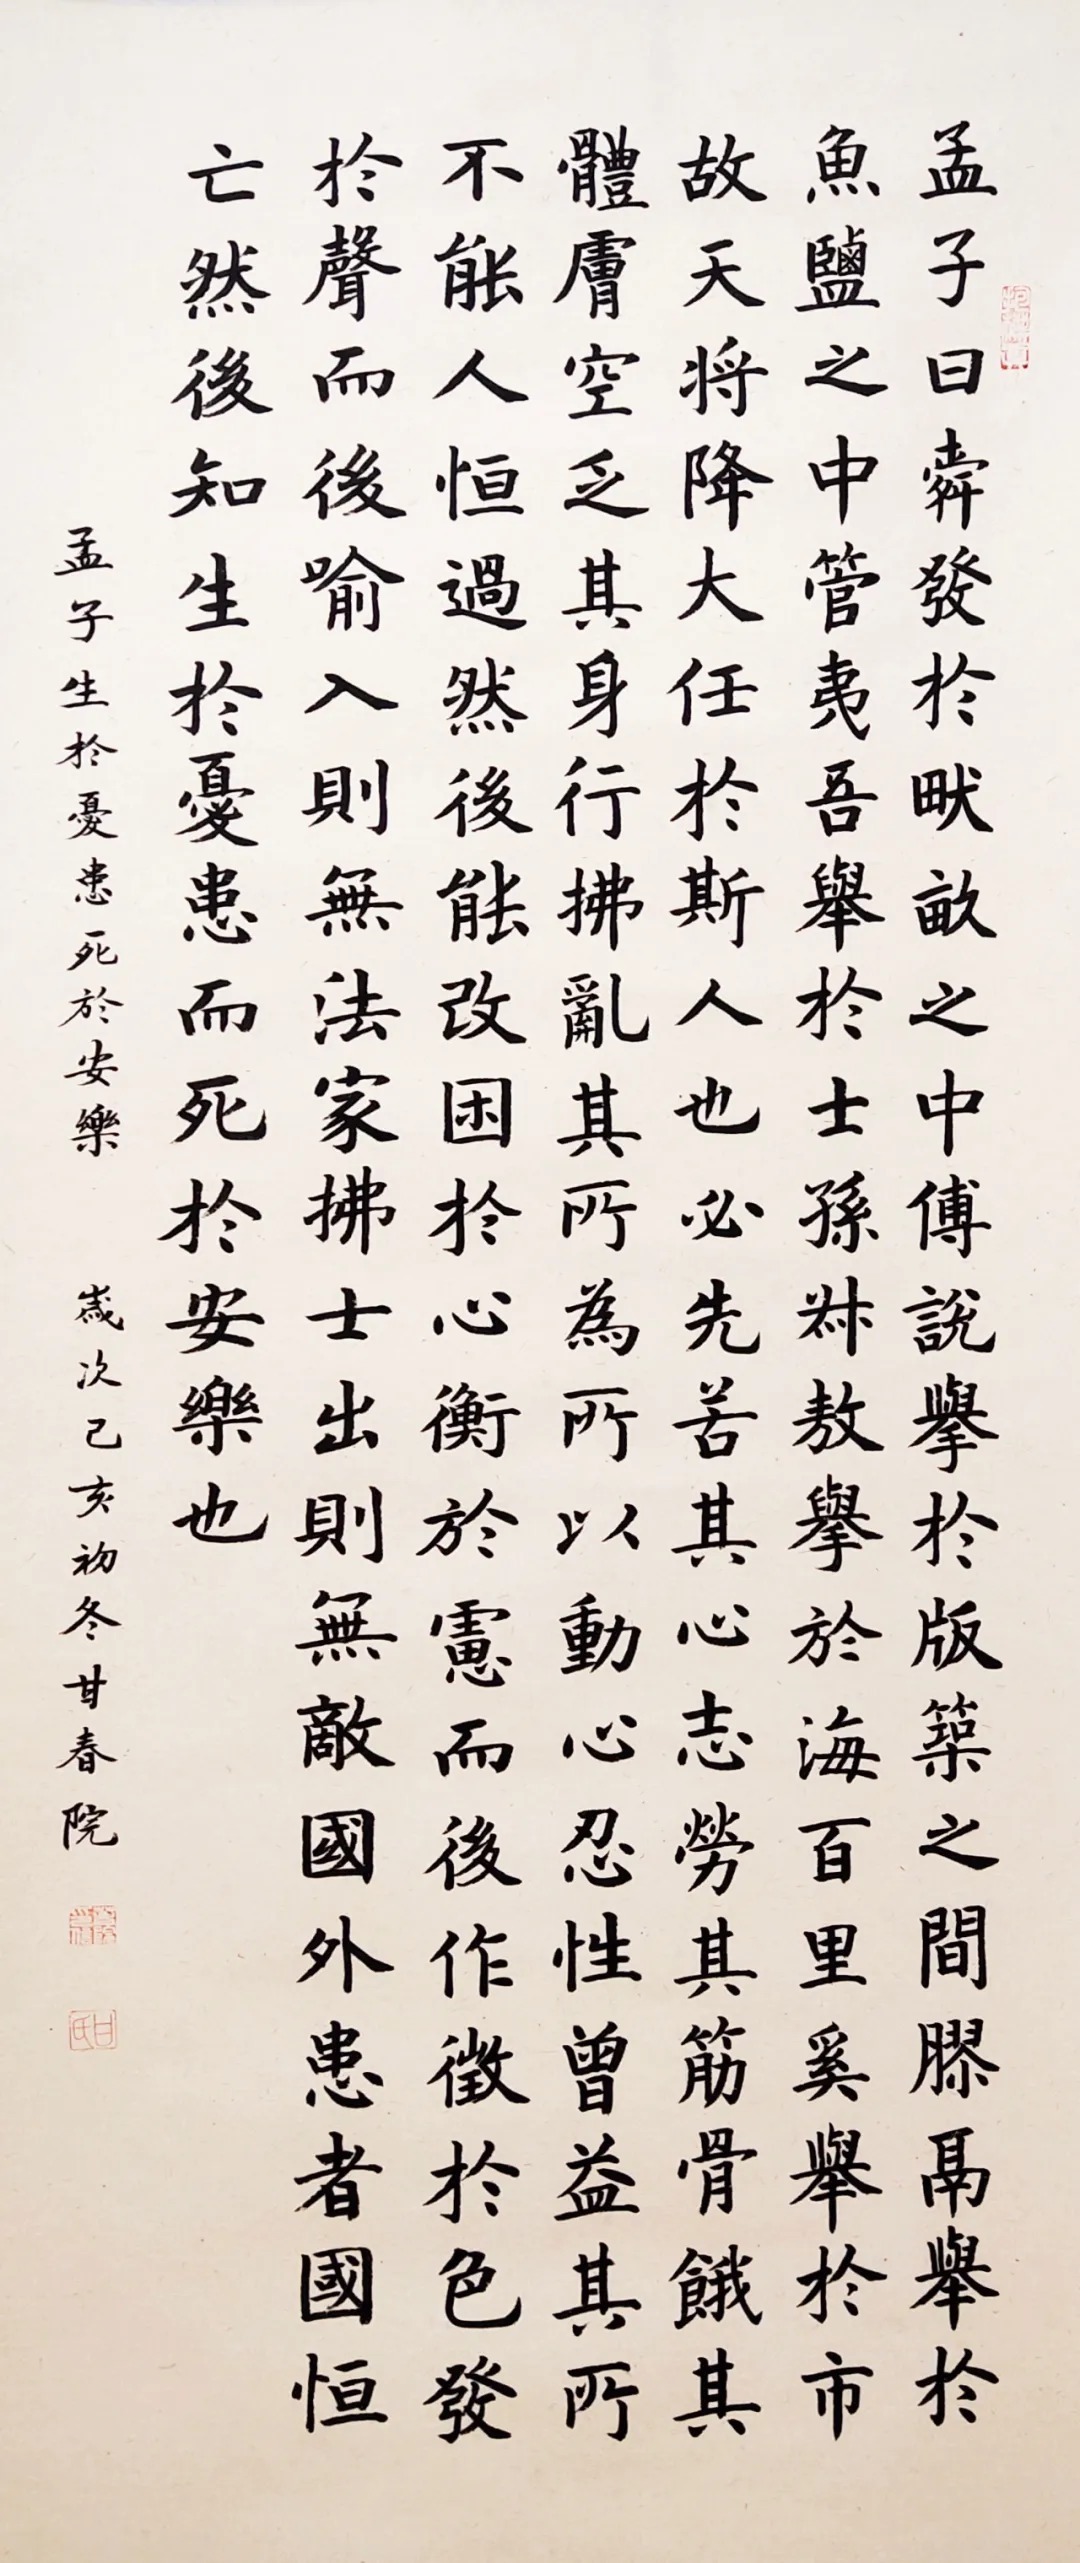 孟子曰舜發於畎畝之中傅說擧於版築之間膠鬲舉於
魚鹽之中管夷吾舉於士孫叔敖擧於海百里奚舉於市
故天将降大任於斯人也必先苦其心志勞其筋骨餓其
體膚空乏其身行拂亂其所為所以動心忍性曾益其所
不能人恒過然後能改困於心衡於慮而後作徵於色發
於聲而後喻入則無法家拂士出則無敵國外患者國恒
亡然後知生於憂患而死於安樂也
孟子生於憂患死於安樂 歲次己亥初冬甘春院
甘氏